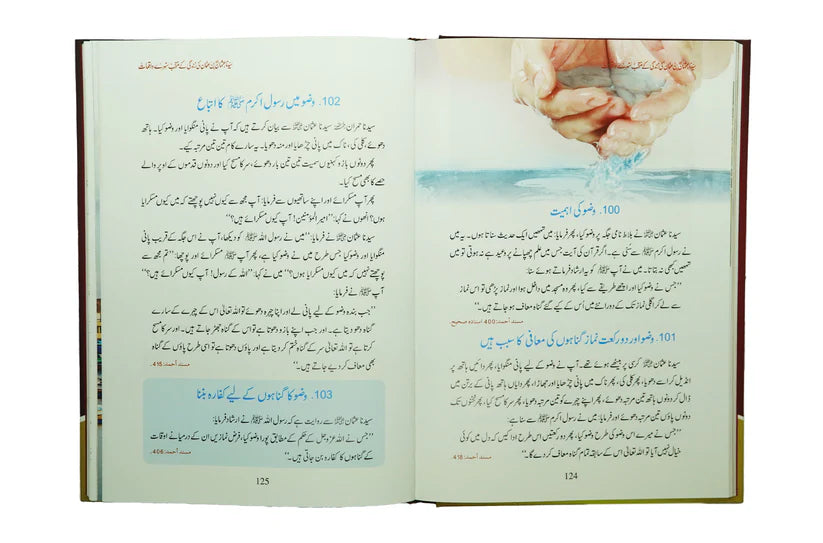 سیدنا عثمان بن عفان کی زندگی کے سنہرے واقعات
100. وضو کی اہمیت
سیدنا عثمان ﷜ نے بلاط نامی جگہ پر وضو کیا، پھر فرمایا: میں تمھیں ایک حدیث سناتا ہوں۔ یہ میں
نے رسول اکرم ﷺ سے سُنی ہے۔ اگر قرآن کی آیت جس میں علم چھپانے پر وعید ہے نہ ہوتی تو میں
تمھیں کبھی نہ بتاتا۔ میں نے آپ ﷺ کو یہ ارشاد فرماتے ہوئے سنا:
’’جس نے وضو کیا اور اچھے طریقے سے کیا، پھر وہ مسجد میں داخل ہوا اور نماز پڑھی تو اس نماز
سے لے کر اگلی نماز تک کے دورانئے میں اُس کے کیے گئے گناہ معاف ہو جاتے ہیں۔‘‘
مسند أحمد:400 اسنادہ صحیح
101. وضو اور دو رکعت نماز گناہوں کی معافی کا سبب ہیں
سیدنا عثمان ﷜ کرسی پر بیٹھے ہوئے تھے۔ آپ نے وضو کے لیے پانی منگوایا، پھر دائیں ہاتھ پر
انڈیل کر اسے دھویا، پھر کلی کی، ناک میں پانی چڑھایا اور جھاڑا، پھر دایاں ہاتھ پانی کے برتن میں
ڈال کر دونوں ہاتھ تین مرتبہ دھوئے، پھر اپنے چہرے کو تین مرتبہ دھویا، پھر سر کا مسح کیا، پھر ٹخنوں تک
دونوں پاؤں تین مرتبہ دھوئے اور فرمایا: میں نے رسول اکرم ﷺ سے سنا ہے:
’’جس نے میرے اس وضو کی طرح وضو کیا، پھر دو رکعتیں اس طرح ادا کیں کہ دل میں کوئی
خیال نہیں آیا تو اللہ تعالیٰ اس کے سابقہ تمام گناہ معاف کر دے گا۔‘‘
مسند أحمد:418
124
سیدنا عثمان بن عفان کی زندگی کے سنہرے واقعات
102. وضو میں رسول اکرم ﷺ کا اتباع
سیدنا حمران سیدنا عثمان ﷜ سے بیان کرتے ہیں کہ آپ نے پانی منگوایا اور وضو کیا۔ ہاتھ
دھوئے، کلی کی، ناک میں پانی چڑھایا اور منہ دھویا۔ یہ سارے کام تین تین مرتبہ کیے۔
پھر دونوں بازو کہنیوں سمیت تین تین بار دھوئے، سر کا مسح کیا اور دونوں قدموں کے اوپر والے
حصے کا بھی مسح کیا۔
پھر آپ مسکرائے اور اپنے ساتھیوں سے فرمایا: آپ مجھ سے کیوں نہیں پوچھتے کہ میں کیوں مسکرایا
ہوں؟ انھوں نے کہا: ’’امیر المؤمنین! آپ کیوں مسکرائے ہیں؟‘‘
سیدنا عثمان ﷜ نے فرمایا: ’’میں نے رسول اللہ ﷺ کو دیکھا، آپ نے اس جگہ کے قریب پانی
منگوایا اور وضو کیا جس طرح میں نے وضو کیا ہے، پھر آپ ﷺ مسکرائے اور فرمایا: ’’تم مجھ سے
پوچھتے نہیں کہ میں کیوں مسکرایا ہوں؟‘‘ میں نے کہا: ’’اللہ کے رسول! آپ کیوں مسکرائے ہیں؟‘‘
آپ ﷺ نے فرمایا:
’’جب بندہ وضو کے لیے پانی لے اور اپنا چہرہ دھوئے تو اللہ تعالیٰ اس کے چہرے کے سارے
گناہ دھو دیتا ہے۔ اور جب اپنے بازو دھوتا ہے تو اس کے گناہ جھڑ جاتے ہیں۔ اور سر کا مسح
کرتا ہے تو اللہ تعالیٰ سر کے گناہ ختم کر دیتا ہے اور پاؤں دھوتا ہے تو اسی طرح پاؤں کے گناہ
بھی معاف کر دیے جاتے ہیں۔‘‘
مسند أحمد:415
103. وضو کا گناہوں کے لیے کفارہ بننا
سیدنا عثمان ﷜ سے روایت ہے کہ رسول اللہ ﷺ نے ارشاد فرمایا:
’’جس نے اللہ عزوجل کے حکم کے مطابق پورا وضو کیا، فرض نمازیں ان کے درمیانے اوقات
کے گناہوں کا کفارہ بن جاتی ہیں۔‘‘
مسند أحمد:406
125